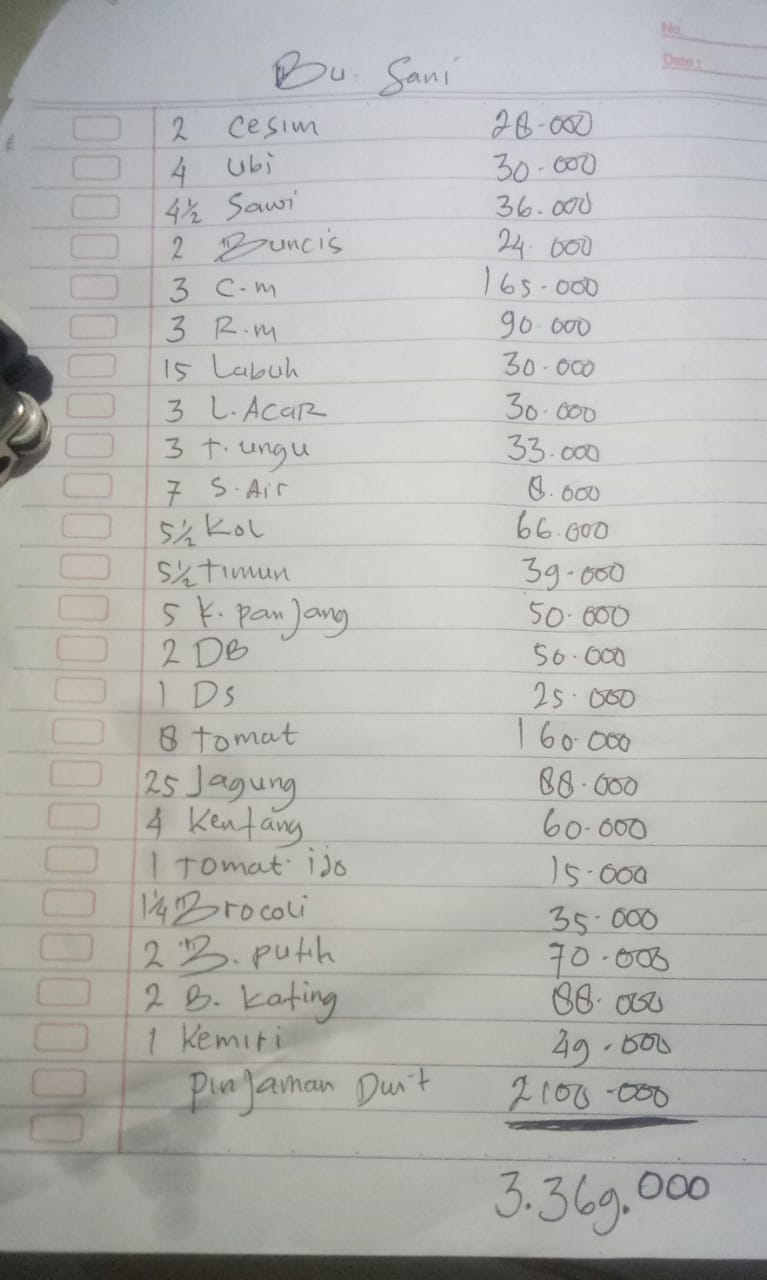 No.
Date :
Bu. Sani
2 Cesim 28.000
4 Ubi 30.000
4½ Sawi 36.000
2 Buncis 24.000
3 C.m 165.000
3 R.m 90.000
15 Labuh 30.000
3 L.ACAR 30.000
3 t.ungu 33.000
7 S.Air 8.000
5½ Kol 66.000
5½ timun 39.000
5 K.panjang 50.000
2 DB 50.000
1 Ds 25.000
8 tomat 160.000
25 Jagung 88.000
4 Kentang 60.000
1 tomat ijo 15.000
1¼ Brocoli 35.000
2 B. putih 70.000
2 B. kating 88.000
1 Kemiri 49.000
pinjaman Duit 2100.000
3.369.000